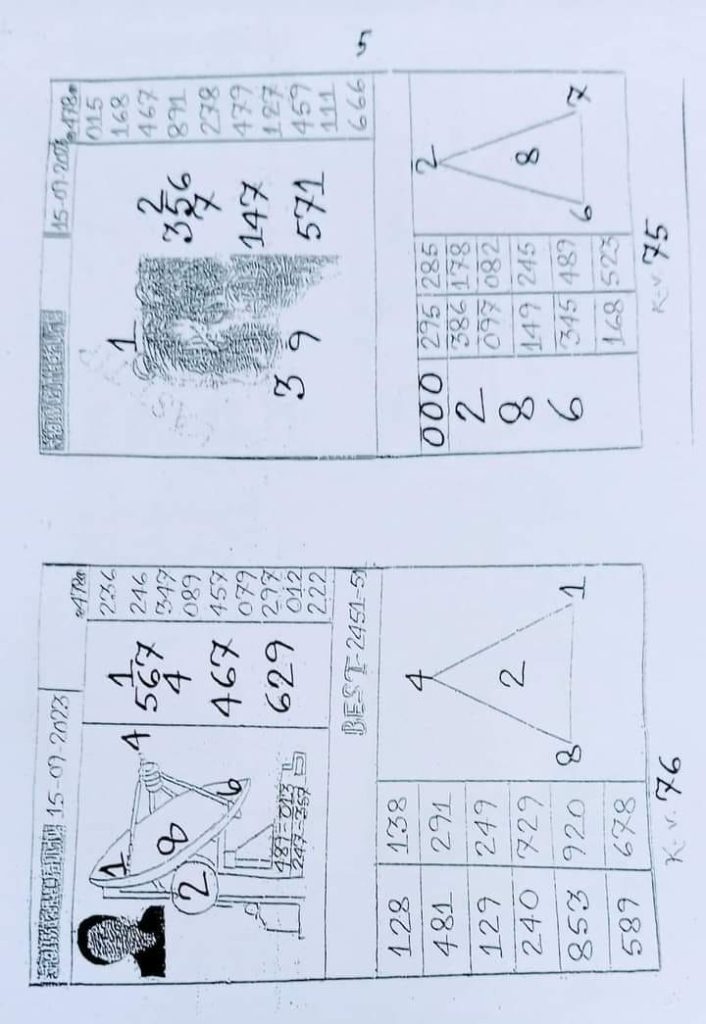 15-09-2023
236
1
246
567
347
4
089
4
1
457
8
467
079
2
6
297
629
012
222
BEST-2451-51
128 138
481 291
4
129 249
240 729
2
853 920
8 1
589 678
K-V. 76
15-09-2023
•478•
015
168
1
2
467
356
891
7
278
147
479
127
3 9
571
459
111
666
5
000 295 285
2
2 386 178
097 082
8 149 245
8
6 345 489
6 7
168 523
K-V. 75